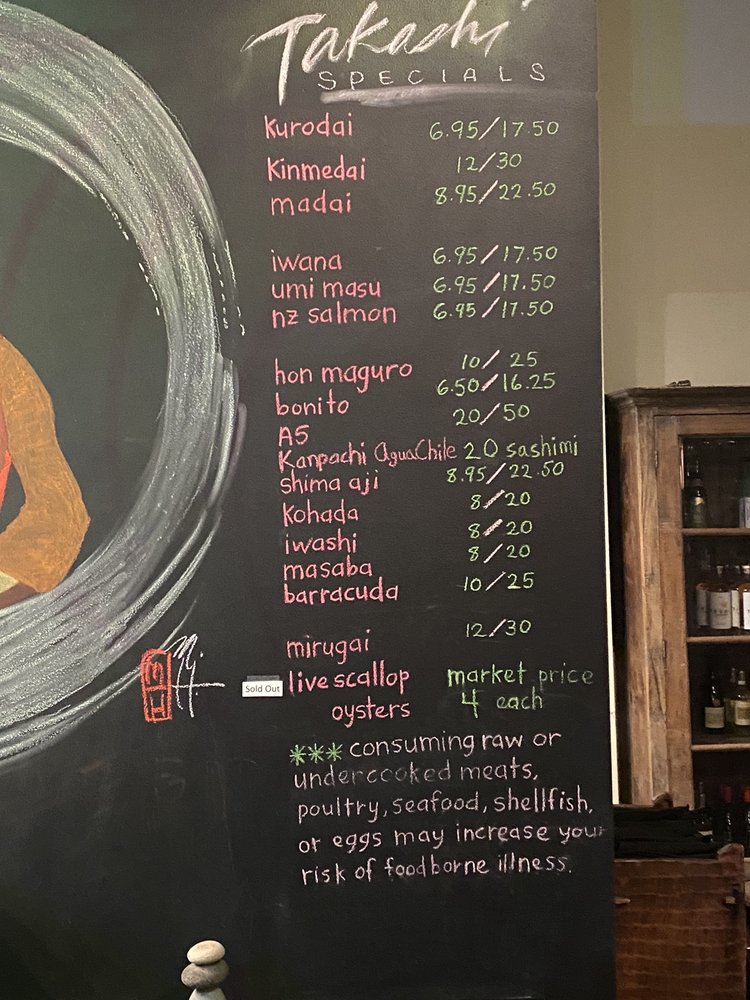 Takashi
SPECIALS
Kurodai 6.95/17.50
Kinmedai 12/30
madai 8.95/22.50
iwana 6.95/17.50
umi masu 6.95/17.50
nz salmon 6.95/17.50
hon maguro 10/25
bonito 6.50/16.25
A5 20/50
Kanpachi AguaChile 20 sashimi
shima aji 8.95/22.50
Kohada 8/20
iwashi 8/20
masaba 8/20
barracuda 10/25
mirugai 12/30
Sold Out live scallop market price
oysters 4 each
*** consuming raw or
undercooked meats,
poultry, seafood, shellfish,
or eggs may increase your
risk of foodborne illness.